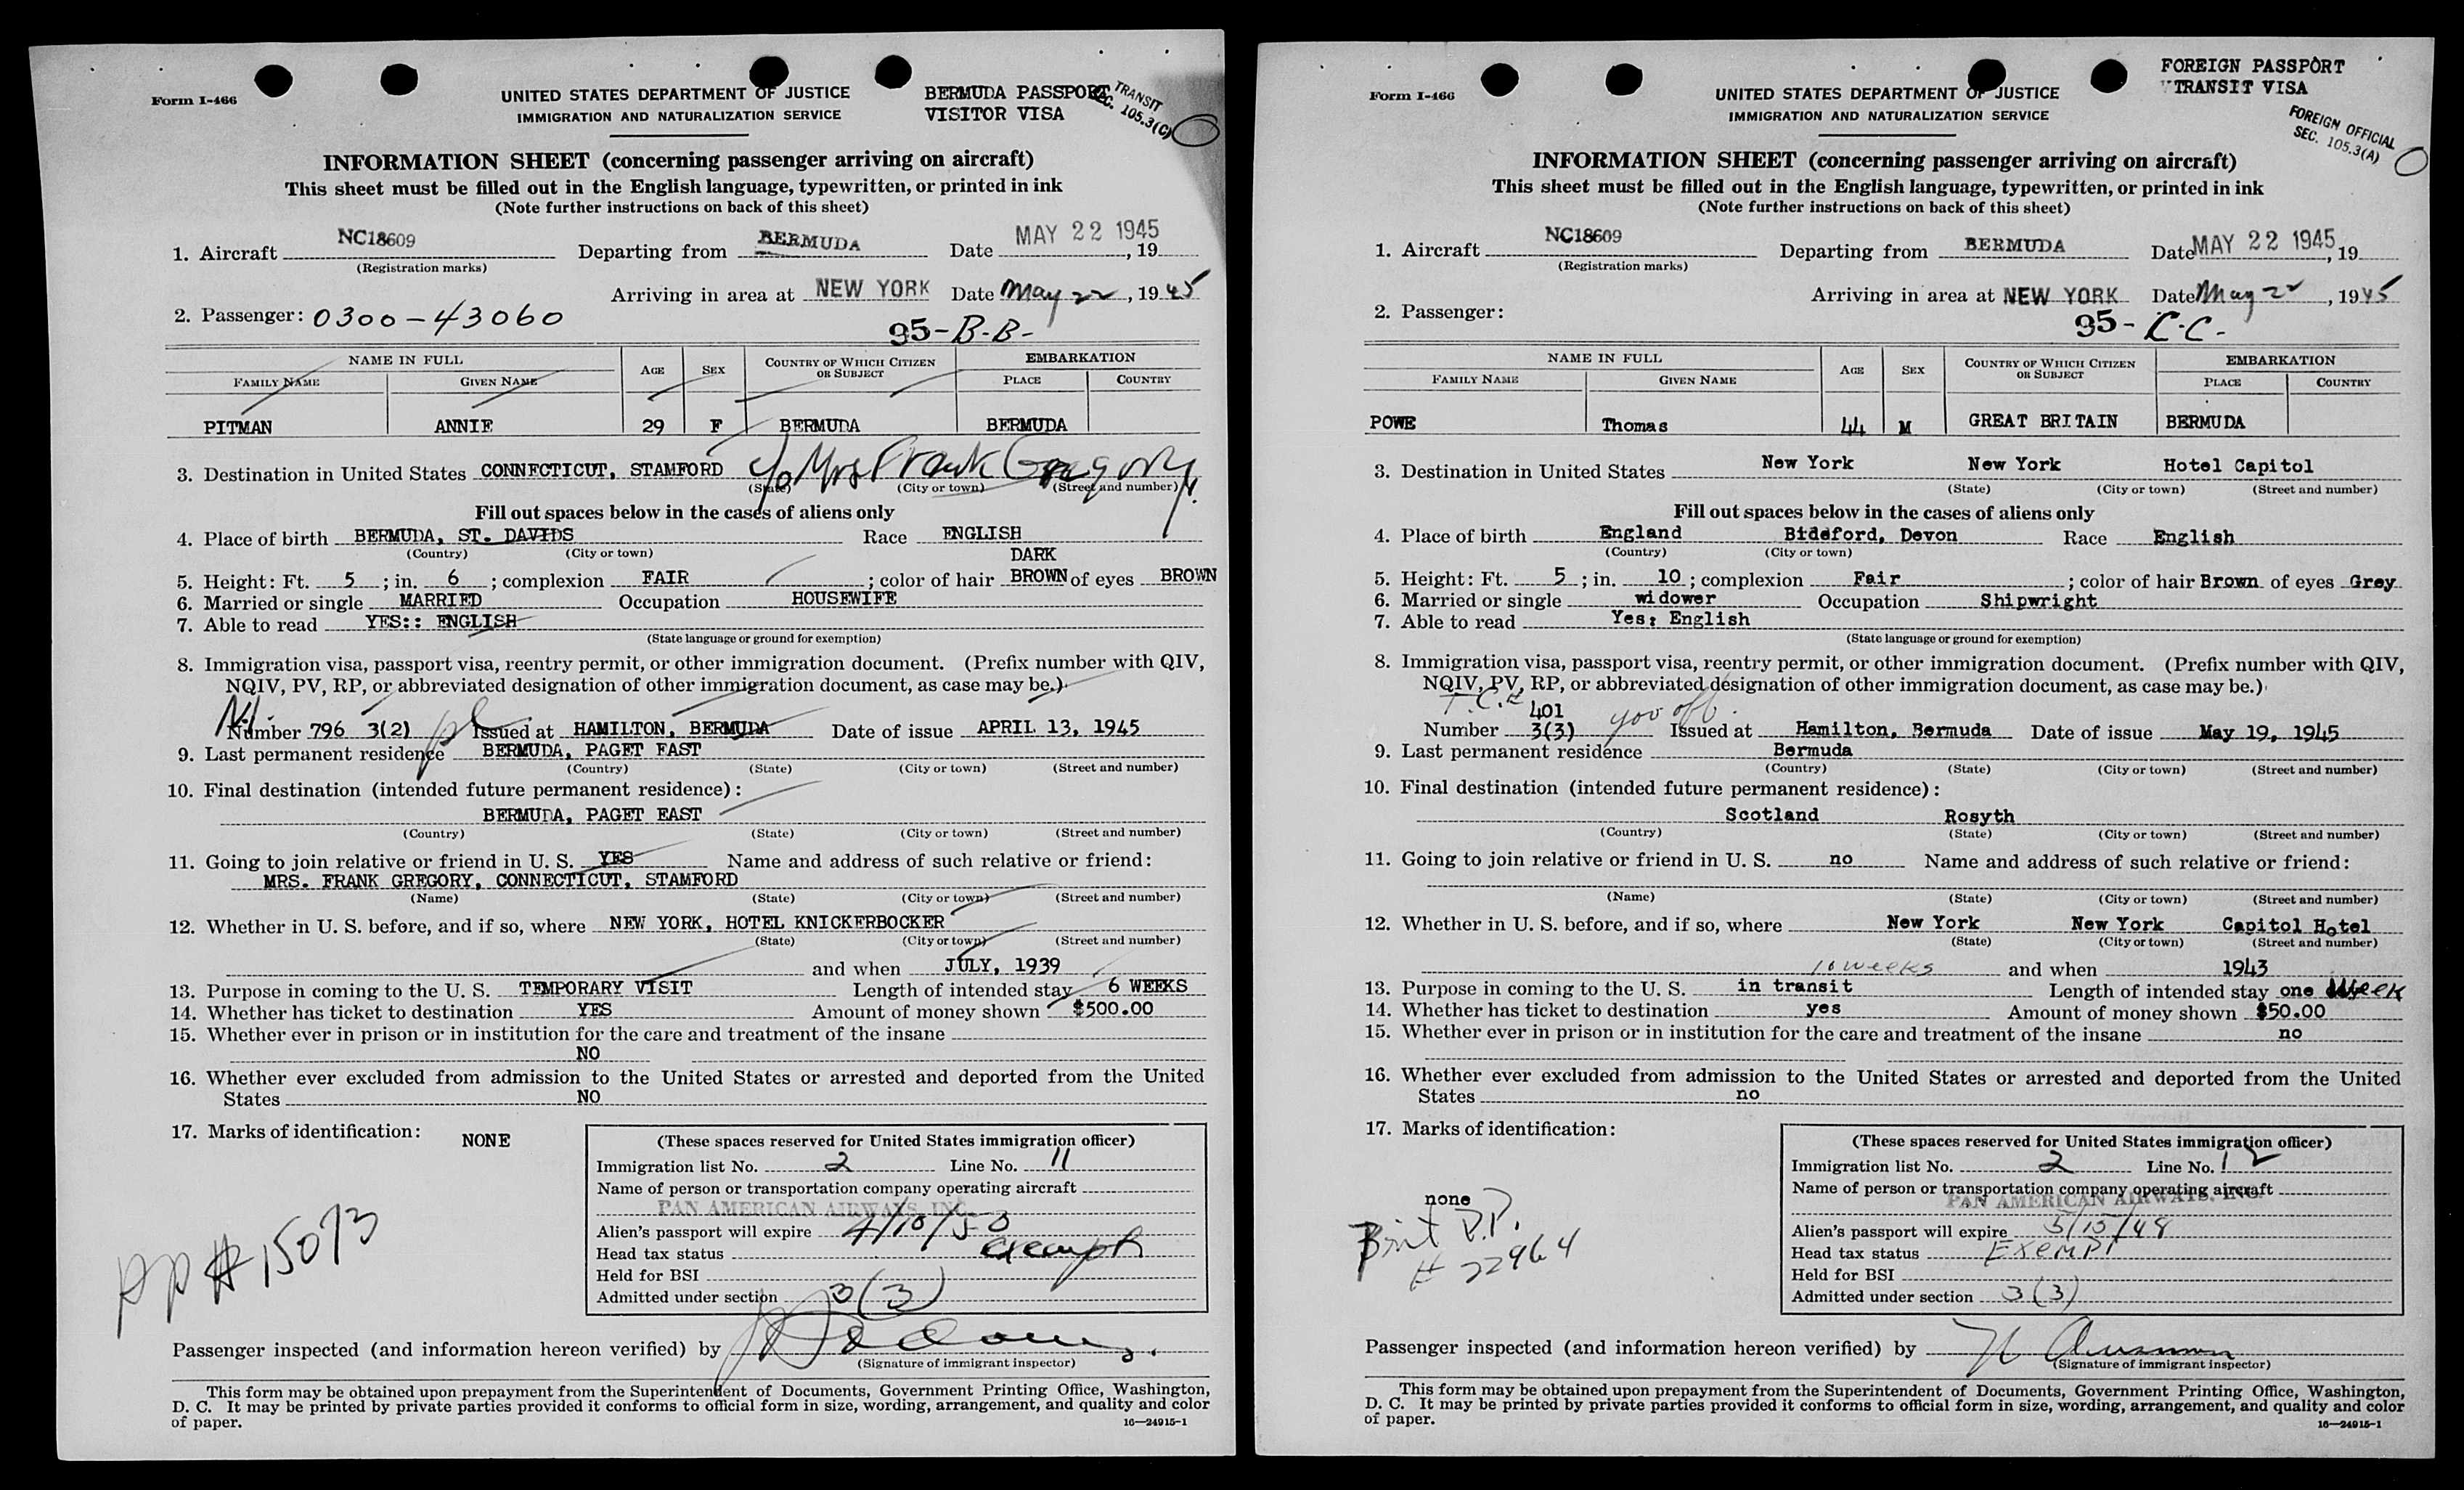 Form I-466
UNITED STATES DEPARTMENT OF JUSTICE
IMMIGRATION AND NATURALIZATION SERVICE
BERMUDA PASSPORT
VISITOR VISA
TRANSIT
SEC. 105.3(C)
INFORMATION SHEET (concerning passenger arriving on aircraft)
This sheet must be filled out in the English language, typewritten, or printed in ink
(Note further instructions on back of this sheet)
1. Aircraft NC18609 Departing from BERMUDA Date MAY 22 1945, 19
(Registration marks)
Arriving in area at NEW YORK Date May 22, 1945
2. Passenger: 0300-43060
95-B-B-
NAME IN FULL AGE SEX COUNTRY OF WHICH CITIZEN OR SUBJECT EMBARKATION
FAMILY NAME GIVEN NAME PLACE COUNTRY
PITMAN ANNIE 29 F BERMUDA BERMUDA
3. Destination in United States CONNECTICUT, STAMFORD c/o Mrs Frank Gregory
(State) (City or town) (Street and number)
Fill out spaces below in the cases of aliens only
4. Place of birth BERMUDA, ST. DAVIDS Race ENGLISH
(Country) (City or town)
5. Height: Ft. 5; in. 6; complexion FAIR; color of hair DARK BROWN of eyes BROWN
6. Married or single MARRIED Occupation HOUSEWIFE
7. Able to read YES:: ENGLISH
(State language or ground for exemption)
8. Immigration visa, passport visa, reentry permit, or other immigration document. (Prefix number with QIV,
NQIV, PV, RP, or abbreviated designation of other immigration document, as case may be.)
Number 796 3(2) Issued at HAMILTON, BERMUDA Date of issue APRIL 13, 1945
9. Last permanent residence BERMUDA, PAGET EAST
(Country) (State) (City or town) (Street and number)
10. Final destination (intended future permanent residence):
BERMUDA, PAGET EAST
(Country) (State) (City or town) (Street and number)
11. Going to join relative or friend in U. S. YES Name and address of such relative or friend:
MRS. FRANK GREGORY, CONNECTICUT, STAMFORD
(Name) (State) (City or town) (Street and number)
12. Whether in U. S. before, and if so, where NEW YORK, HOTEL KNICKERBOCKER
(State) (City or town) (Street and number)
and when JULY, 1939
13. Purpose in coming to the U. S. TEMPORARY VISIT Length of intended stay 6 WEEKS
14. Whether has ticket to destination YES Amount of money shown $500.00
15. Whether ever in prison or in institution for the care and treatment of the insane
NO
16. Whether ever excluded from admission to the United States or arrested and deported from the United
States NO
17. Marks of identification: NONE
PP # 15073
(These spaces reserved for United States immigration officer)
Immigration list No. 2 Line No. 11
Name of person or transportation company operating aircraft
PAN AMERICAN AIRWAYS, INC.
Alien's passport will expire 4/10/50
Head tax status exempt
Held for BSI
Admitted under section 3(3)
Passenger inspected (and information hereon verified) by
(Signature of immigrant inspector)
This form may be obtained upon prepayment from the Superintendent of Documents, Government Printing Office, Washington,
D. C. It may be printed by private parties provided it conforms to official form in size, wording, arrangement, and quality and color
of paper.
16—24915-1
Form I-466
UNITED STATES DEPARTMENT OF JUSTICE
IMMIGRATION AND NATURALIZATION SERVICE
FOREIGN PASSPORT
TRANSIT VISA
FOREIGN OFFICIAL
SEC. 105.3(A)
INFORMATION SHEET (concerning passenger arriving on aircraft)
This sheet must be filled out in the English language, typewritten, or printed in ink
(Note further instructions on back of this sheet)
1. Aircraft NC18609 Departing from BERMUDA Date MAY 22 1945, 19
(Registration marks)
Arriving in area at NEW YORK Date May 22, 1945
2. Passenger:
95-C-C-
NAME IN FULL AGE SEX COUNTRY OF WHICH CITIZEN OR SUBJECT EMBARKATION
FAMILY NAME GIVEN NAME PLACE COUNTRY
POWE Thomas 44 M GREAT BRITAIN BERMUDA
3. Destination in United States New York New York Hotel Capitol
(State) (City or town) (Street and number)
Fill out spaces below in the cases of aliens only
4. Place of birth England Bideford, Devon Race English
(Country) (City or town)
5. Height: Ft. 5; in. 10; complexion Fair; color of hair Brown of eyes Grey
6. Married or single widower Occupation Shipwright
7. Able to read Yes; English
(State language or ground for exemption)
8. Immigration visa, passport visa, reentry permit, or other immigration document. (Prefix number with QIV,
NQIV, PV, RP, or abbreviated designation of other immigration document, as case may be.)
T.C.#
401
Number 3(3) Issued at Hamilton, Bermuda Date of issue May 19, 1945
9. Last permanent residence Bermuda
(Country) (State) (City or town) (Street and number)
10. Final destination (intended future permanent residence):
Scotland Rosyth
(Country) (State) (City or town) (Street and number)
11. Going to join relative or friend in U. S. no Name and address of such relative or friend:
(Name) (State) (City or town) (Street and number)
12. Whether in U. S. before, and if so, where New York New York Capitol Hotel
(State) (City or town) (Street and number)
10 weeks and when 1943
13. Purpose in coming to the U. S. in transit Length of intended stay one week
14. Whether has ticket to destination yes Amount of money shown $50.00
15. Whether ever in prison or in institution for the care and treatment of the insane no
16. Whether ever excluded from admission to the United States or arrested and deported from the United
States no
17. Marks of identification:
none
Brit P.P.
# 22964
(These spaces reserved for United States immigration officer)
Immigration list No. 2 Line No. 12
Name of person or transportation company operating aircraft
PAN AMERICAN AIRWAYS, INC.
Alien's passport will expire 5/15/48
Head tax status Exempt
Held for BSI
Admitted under section 3(3)
Passenger inspected (and information hereon verified) by
(Signature of immigrant inspector)
This form may be obtained upon prepayment from the Superintendent of Documents, Government Printing Office, Washington,
D. C. It may be printed by private parties provided it conforms to official form in size, wording, arrangement, and quality and color
of paper.
16—24915-1